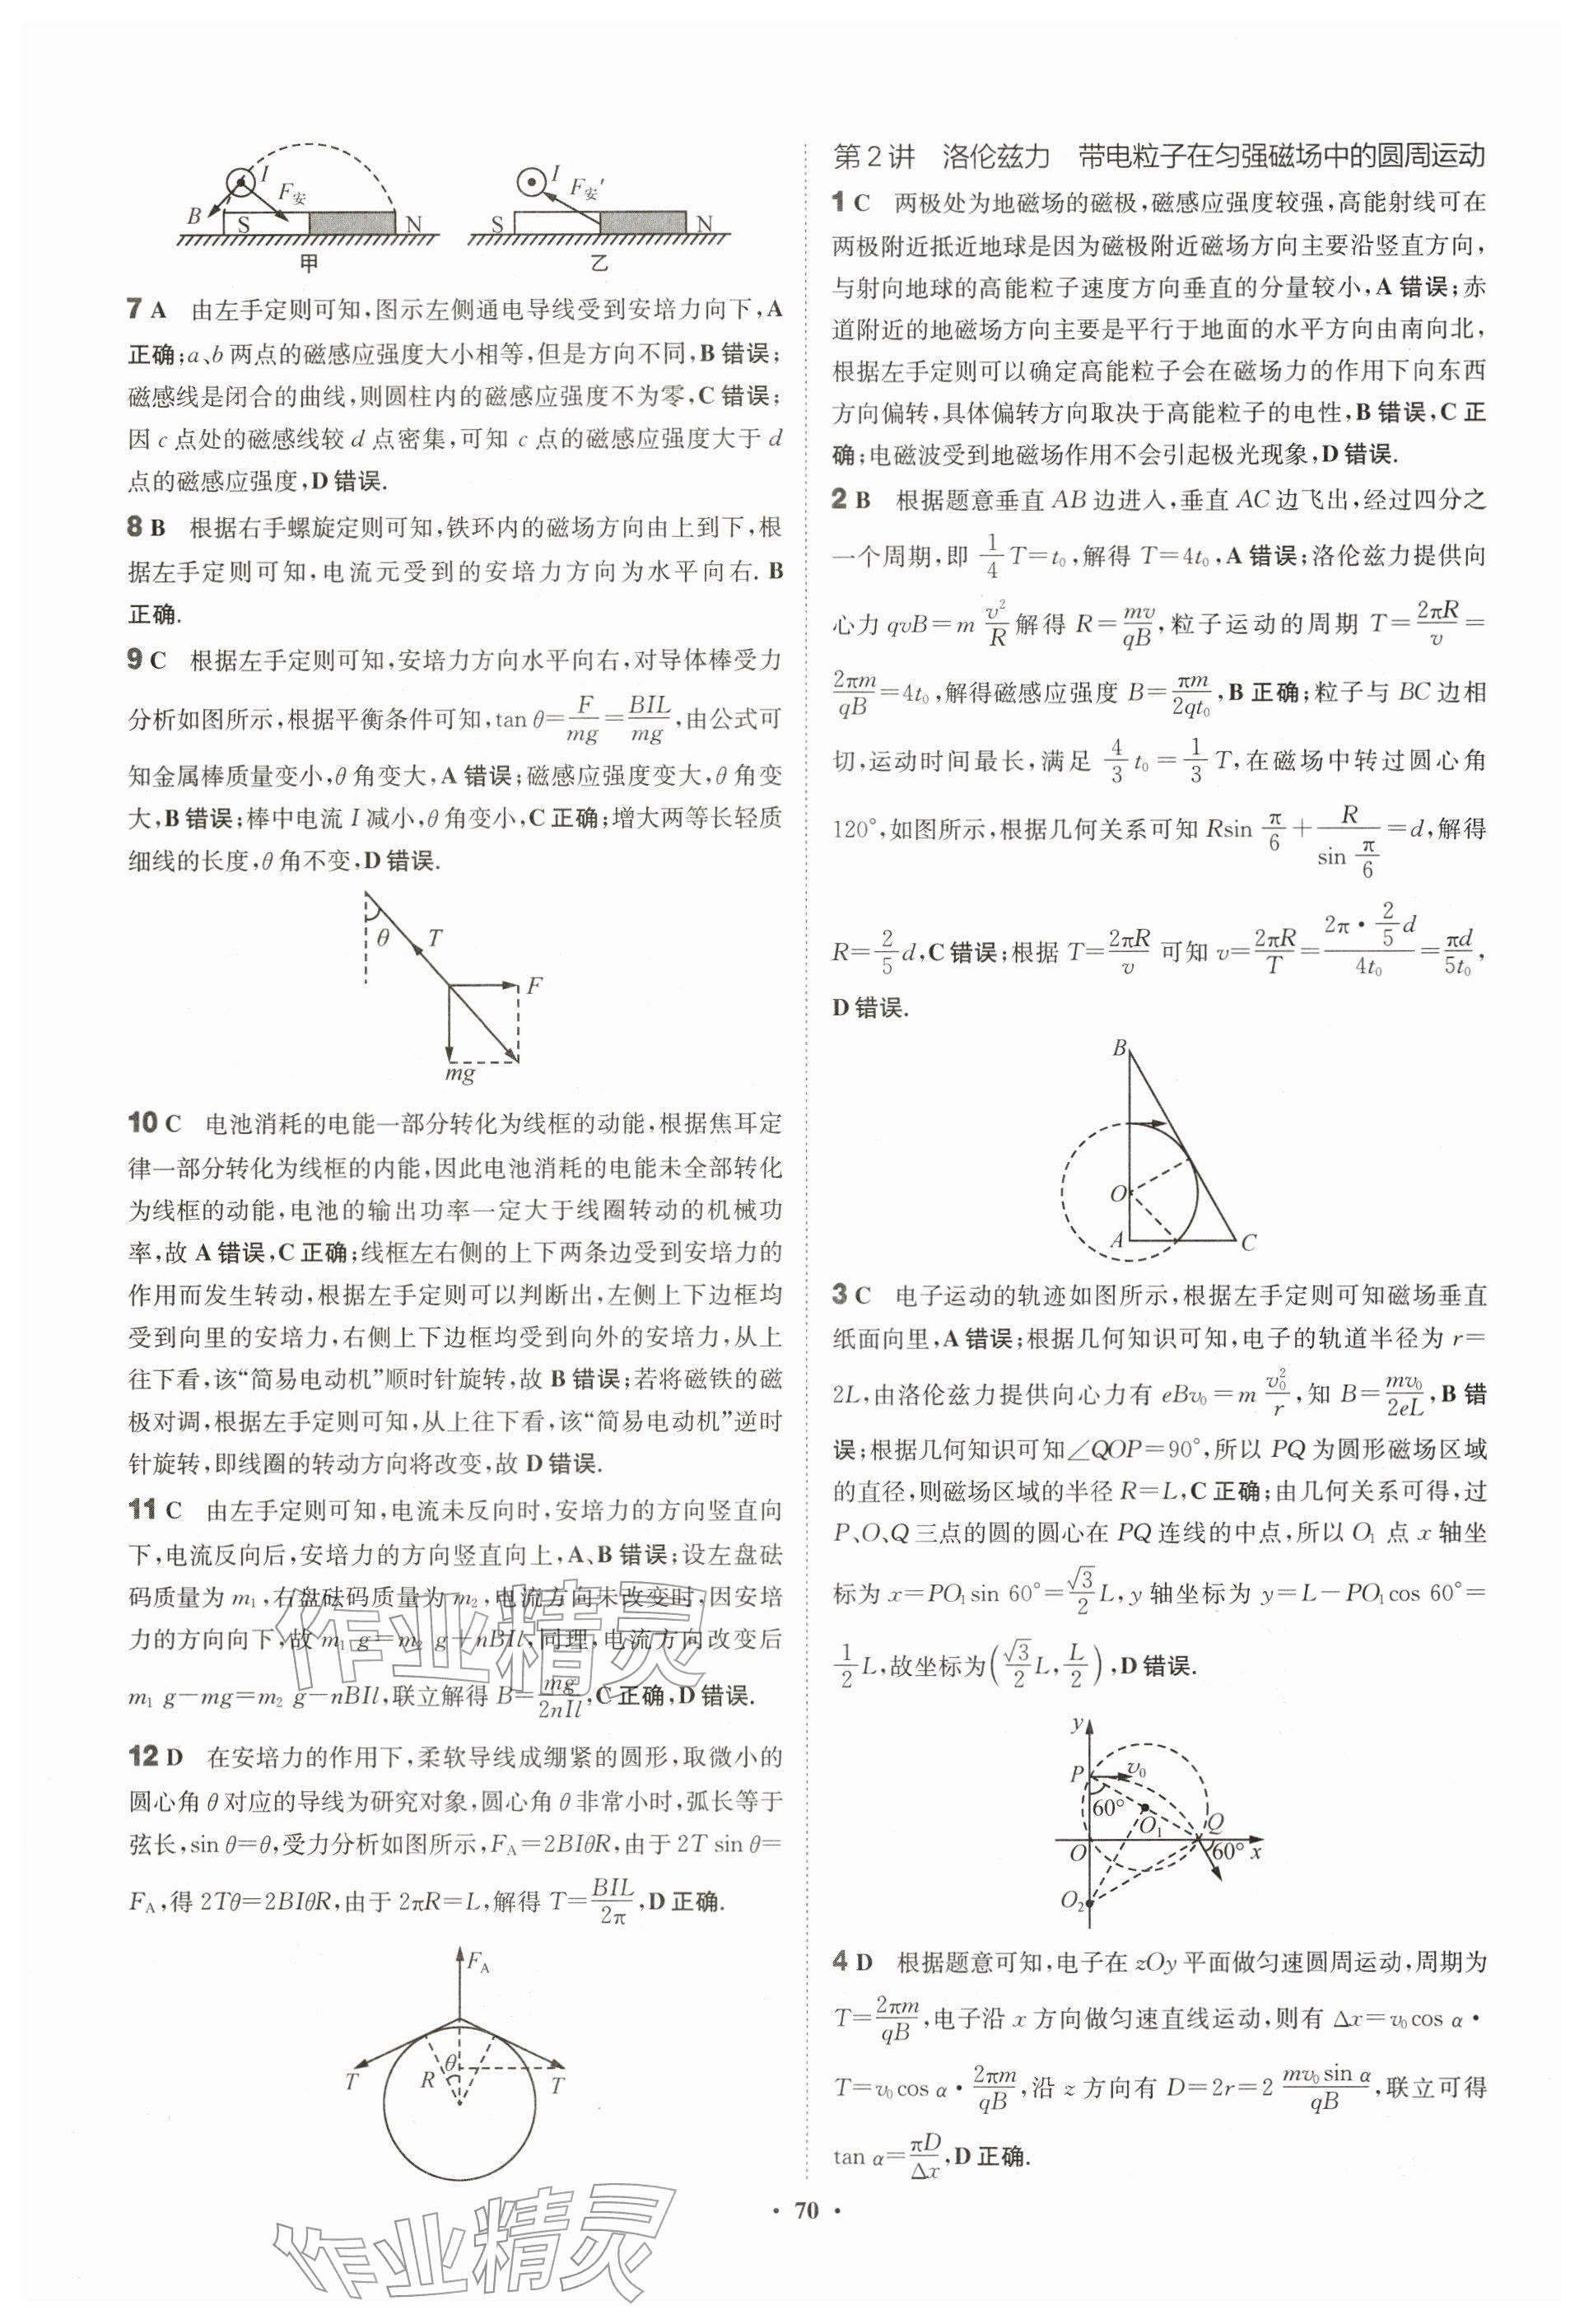 I
F安
B
S
N
甲
I
F安′
S
N
乙
7 A 由左手定则可知,图示左侧通电导线受到安培力向下,A
正确;a、b 两点的磁感应强度大小相等,但是方向不同,B 错误;
磁感线是闭合的曲线,则圆柱内的磁感应强度不为零,C 错误;
因 c 点处的磁感线较 d 点密集,可知 c 点的磁感应强度大于 d
点的磁感应强度,D 错误.
8 B 根据右手螺旋定则可知,铁环内的磁场方向由上到下,根
据左手定则可知,电流元受到的安培力方向为水平向右. B
正确.
9 C 根据左手定则可知,安培力方向水平向右,对导体棒受力
分析如图所示,根据平衡条件可知,tan θ=F/mg=BIL/mg,由公式可
知金属棒质量变小,θ 角变大,A 错误;磁感应强度变大,θ 角变
大,B 错误;棒中电流 I 减小,θ 角变小,C 正确;增大两等长轻质
细线的长度,θ 角不变,D 错误.
θ
T
F
mg
10 C 电池消耗的电能一部分转化为线框的动能,根据焦耳定
律一部分转化为线框的内能,因此电池消耗的电能未全部转化
为线框的动能,电池的输出功率一定大于线圈转动的机械功
率,故 A 错误,C 正确;线框左右侧的上下两条边受到安培力的
作用而发生转动,根据左手定则可以判断出,左侧上下边框均
受到向里的安培力,右侧上下边框均受到向外的安培力,从上
往下看,该“简易电动机”顺时针旋转,故 B 错误;若将磁铁的磁
极对调,根据左手定则可知,从上往下看,该“简易电动机”逆时
针旋转,即线圈的转动方向将改变,故 D 错误.
11 C 由左手定则可知,电流未反向时,安培力的方向竖直向
下,电流反向后,安培力的方向竖直向上,A、B 错误;设左盘砝
码质量为 m₁,右盘砝码质量为 m₂,电流方向未改变时,因安培
力的方向向下,故 m₁ g=m₂ g+nBIl,同理,电流方向改变后
m₁ g−mg=m₂ g−nBIl,联立解得 B=mg/2nIl,C 正确,D 错误.
12 D 在安培力的作用下,柔软导线成绷紧的圆形,取微小的
圆心角 θ 对应的导线为研究对象,圆心角 θ 非常小时,弧长等于
弦长,sin θ=θ,受力分析如图所示,F_A=2BIθR,由于 2T sin θ=
F_A,得 2Tθ=2BIθR,由于 2πR=L,解得 T=BIL/2π,D 正确.
F_A
T
R
θ
T
第 2 讲 洛伦兹力 带电粒子在匀强磁场中的圆周运动
1 C 两极处为地磁场的磁极,磁感应强度较强,高能射线可在
两极附近抵近地球是因为磁极附近磁场方向主要沿竖直方向,
与射向地球的高能粒子速度方向垂直的分量较小,A 错误;赤
道附近的地磁场方向主要是平行于地面的水平方向由南向北,
根据左手定则可以确定高能粒子会在磁场力的作用下向东西
方向偏转,具体偏转方向取决于高能粒子的电性,B 错误,C 正
确;电磁波受到地磁场作用不会引起极光现象,D 错误.
2 B 根据题意垂直 AB 边进入,垂直 AC 边飞出,经过四分之
一个周期,即 1/4 T=t₀,解得 T=4t₀,A 错误;洛伦兹力提供向
心力 qvB=m v²/R 解得 R=mv/qB,粒子运动的周期 T=2πR/v=
2πm/qB=4t₀,解得磁感应强度 B=πm/2qt₀,B 正确;粒子与 BC 边相
切,运动时间最长,满足 4/3 t₀=1/3 T,在磁场中转过圆心角
120°,如图所示,根据几何关系可知 Rsin π/6+R/(sin π/6)=d,解得
R=2/5 d,C 错误;根据 T=2πR/v 可知 v=2πR/T=(2π·2/5 d)/4t₀=πd/5t₀,
D 错误.
B
O
A
C
3 C 电子运动的轨迹如图所示,根据左手定则可知磁场垂直
纸面向里,A 错误;根据几何知识可知,电子的轨道半径为 r=
2L,由洛伦兹力提供向心力有 eBv₀=m v₀²/r,知 B=mv₀/2eL,B 错
误;根据几何知识可知∠QOP=90°,所以 PQ 为圆形磁场区域
的直径,则磁场区域的半径 R=L,C 正确;由几何关系可得,过
P、O、Q 三点的圆的圆心在 PQ 连线的中点,所以 O₁ 点 x 轴坐
标为 x=PO₁sin 60°=√3/2 L,y 轴坐标为 y=L−PO₁cos 60°=
1/2 L,故坐标为(√3/2 L,L/2),D 错误.
y
P
v₀
60°
O₁
Q
O
60°
x
O₂
4 D 根据题意可知,电子在 zOy 平面做匀速圆周运动,周期为
T=2πm/qB,电子沿 x 方向做匀速直线运动,则有 Δx=v₀cos α·
T=v₀cos α·2πm/qB,沿 z 方向有 D=2r=2 mv₀sin α/qB,联立可得
tan α=πD/Δx,D 正确.
· 70 ·
作业精灵
作业精灵